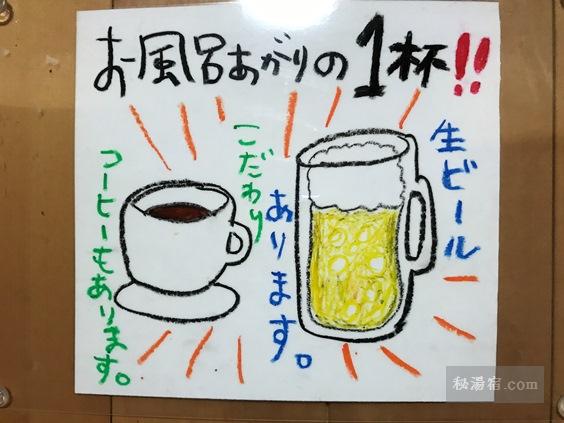 お風呂あがりの1杯!!
生ビール
あります。
こだわり
コーヒーもあります。
秘湯宿.com